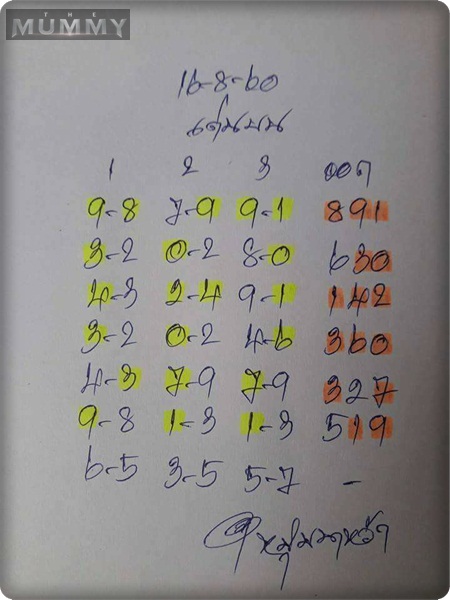 THE
MUMMY
16-8-60
เด่นบน
1 2 3 ออก
9-8 7-9 9-1 891
3-2 0-2 8-0 630
4-3 2-4 9-1 142
3-2 0-2 4-6 360
4-3 7-9 7-9 327
9-8 1-3 1-3 519
6-5 3-5 5-7 -